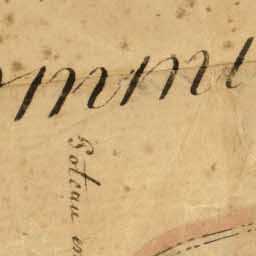 mmu
Poteau en